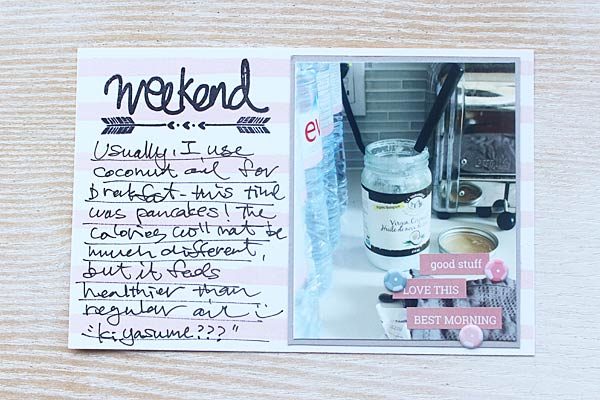 weekend
Usually, I use
coconut oil for
brakfast - this time
was pancakes! The
calories will not be
much different,
but it feels
healthier than
regular oil :
"kiyasume???"
ev
Virgin
good stuff
LOVE THIS
BEST MORNING